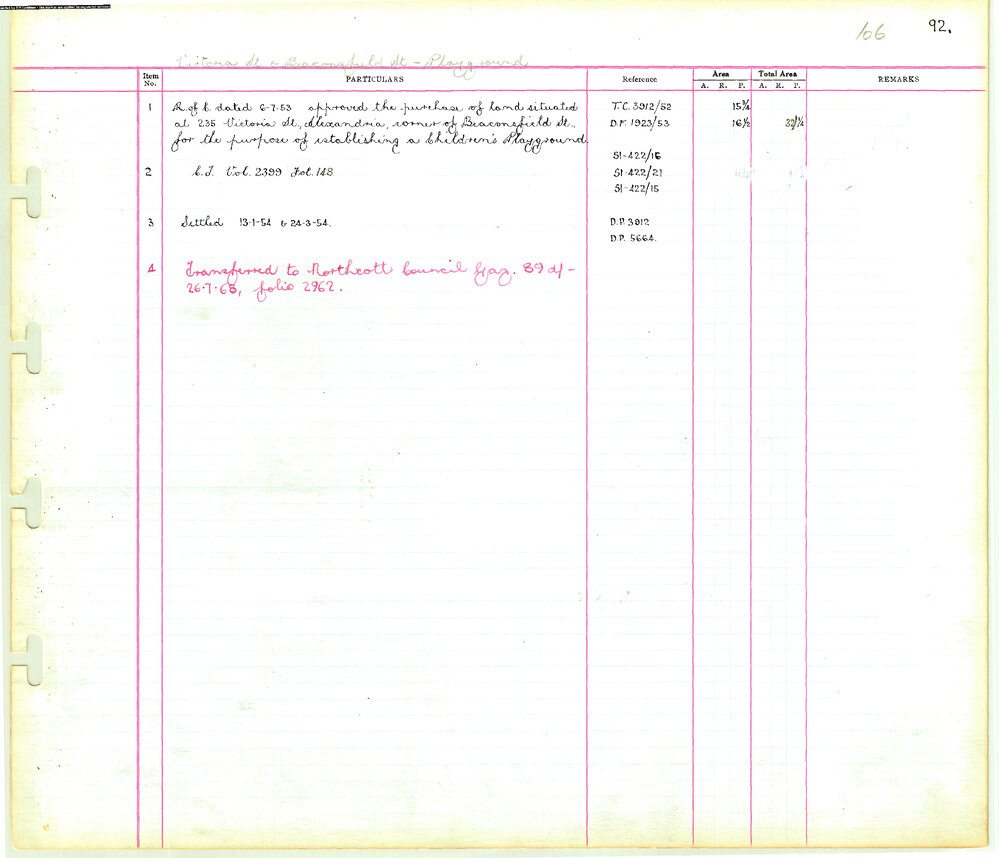 106 92.
Victoria St & Beaconsfield St - Playground
Item No. PARTICULARS Reference Area Total Area REMARKS
A. R. P. A. R. P.
1 R. of C. dated 6-7-53 approved the purchase of land situated T.C. 3912/52 15¾
at 235 Victoria St., Alexandria, corner of Beaconsfield St., D.F. 1923/53 16½ 32¼
for the purpose of establishing a Children's Playground.
51-422/16
2 C.T. Vol. 2399 Fol. 148 51-422/21
51-422/15
3 Settled 13-1-54 & 24-3-54. D.P. 3912
D.P. 5664.
4 Transferred to Northcott Council Gaz. 89 of -
26.7.68, folio 2962.